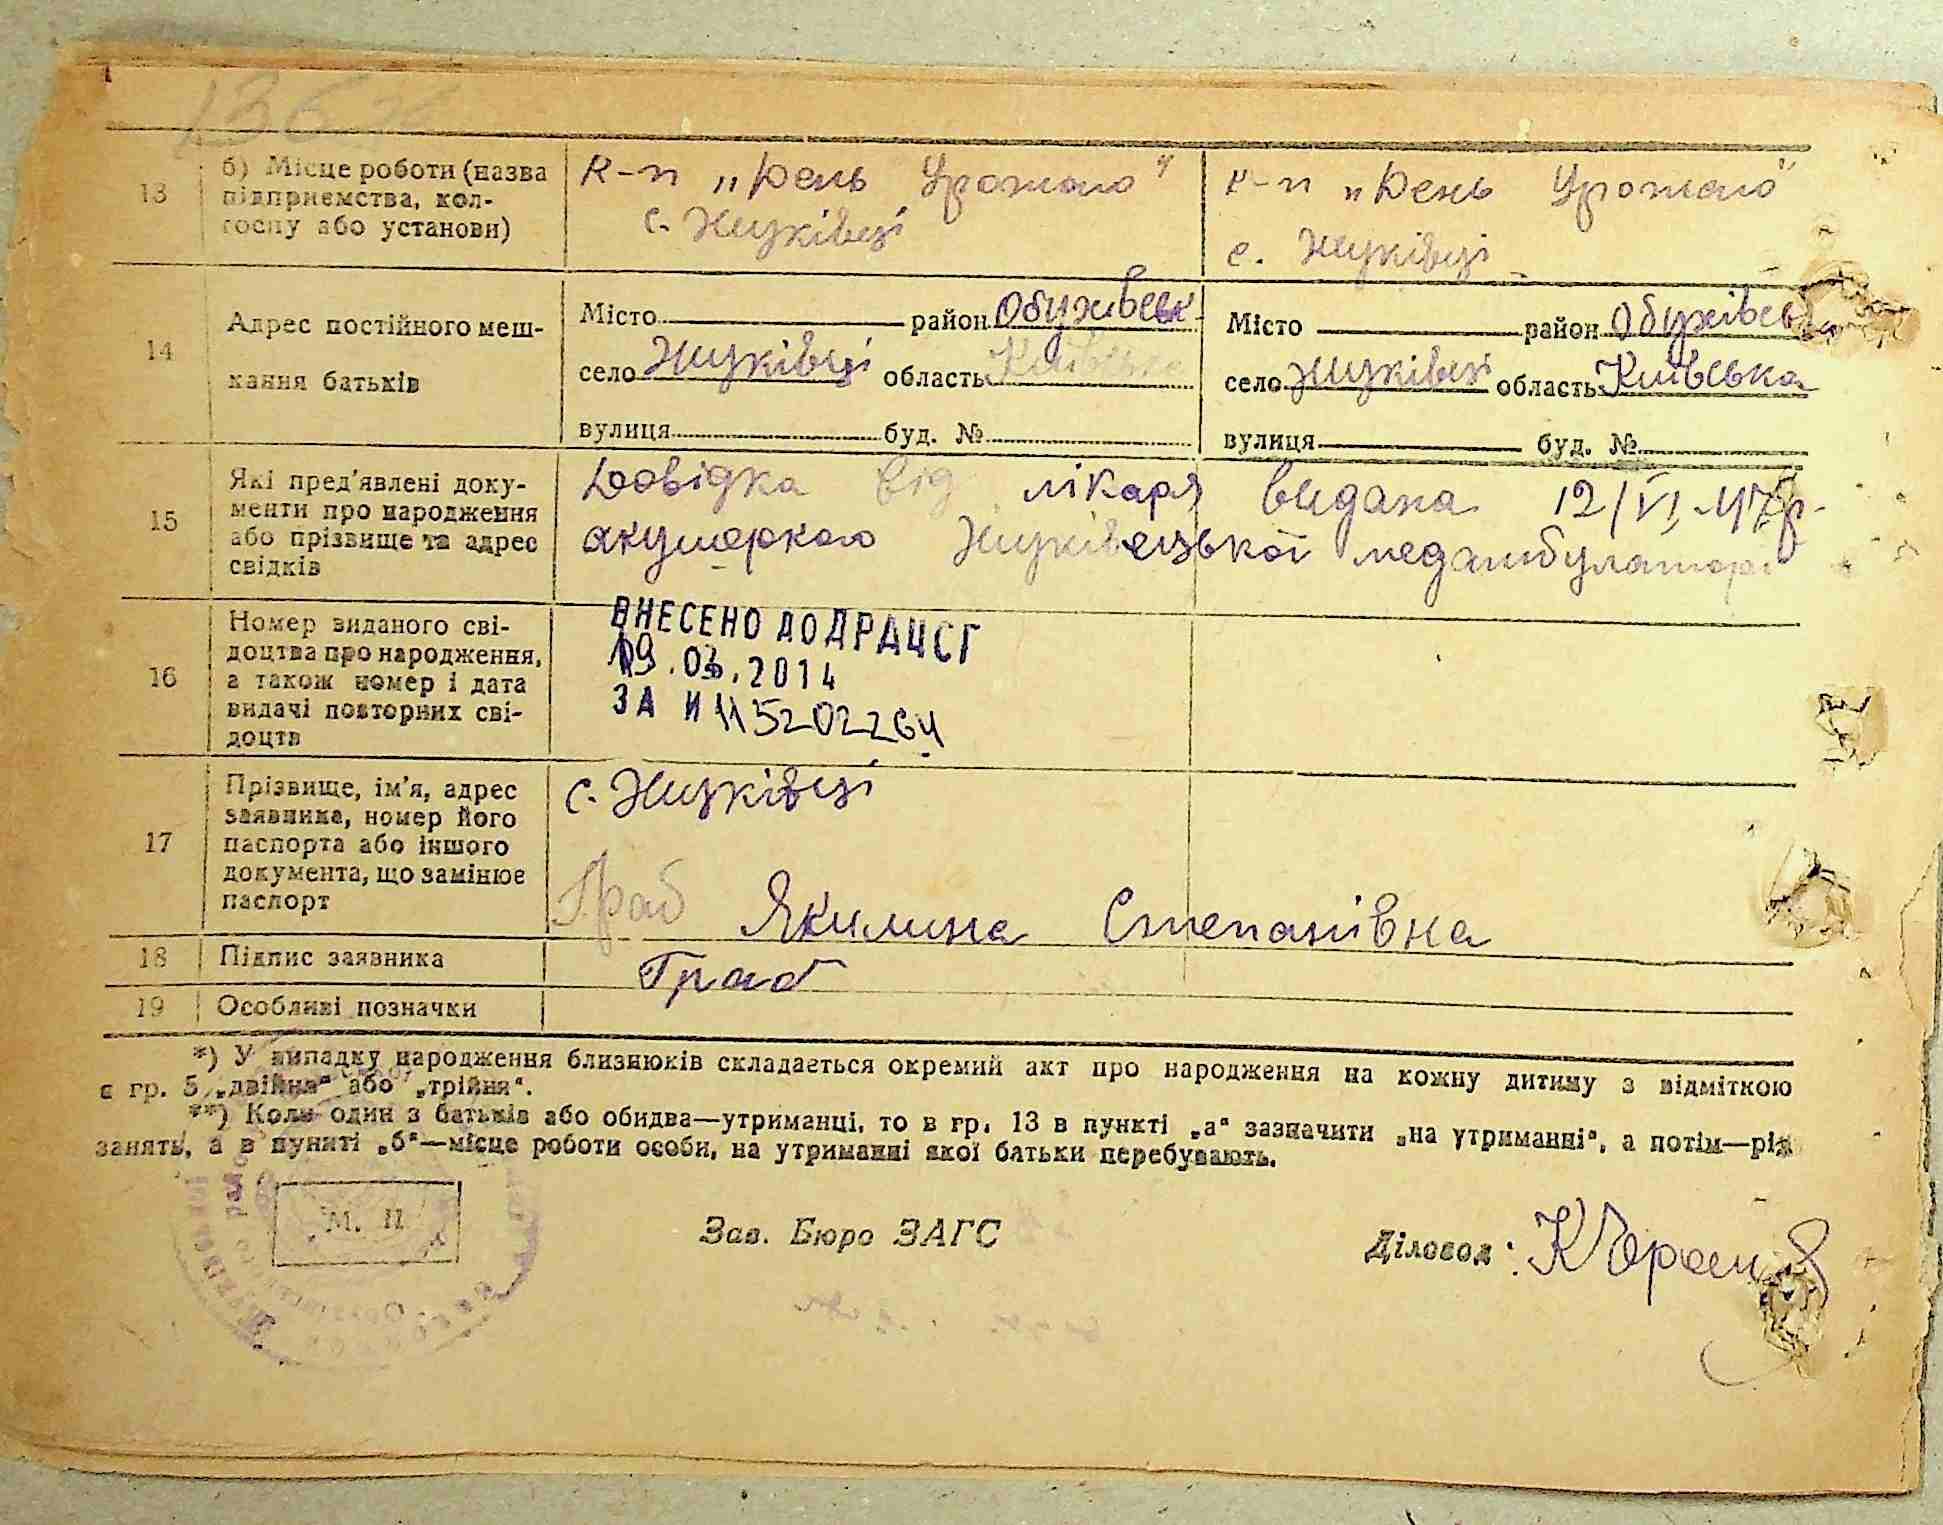 13 б) Місце роботи (назва підприємства, колгоспу або установи)
к-п „День Урожаю"
с. Жуківці
к-п „День Урожаю"
с. Жуківці
14 Адрес постійного мешкання батьків
Місто район Обухівськ
село Жуківці область Київська
вулиця буд. №
Місто район Обухівськ
село Жуківці область Київська
вулиця буд. №
15 Які пред'явлені документи про народження або прізвище та адрес свідків
Довідка від лікаря видана 12/VI-47р.
акушеркою Жуківецької медамбулаторі
16 Номер виданого свідоцтва про народження, а також номер і дата видачі повторних свідоцтв
ВНЕСЕНО ДО ДРАЦСГ
19.03.2014
ЗА И 115202264
17 Прізвище, ім'я, адрес заявника, номер його паспорта або іншого документа, що замінює паспорт
с. Жуківці
Граб Якилина Степанівна
18 Підпис заявника
Граб
19 Особливі позначки
*) У випадку народження близнюків складається окремий акт про народження на кожну дитину з відміткою
в гр. 5 „двійня" або „трійня".
**) Коли один з батьків або обидва—утриманці, то в гр. 13 в пункті „а" зазначити „на утриманні", а потім—рід
занять, а в пункті „б"—місце роботи особи, на утриманні якої батьки перебувають.
М. П
Зав. Бюро ЗАГС
Діловод: